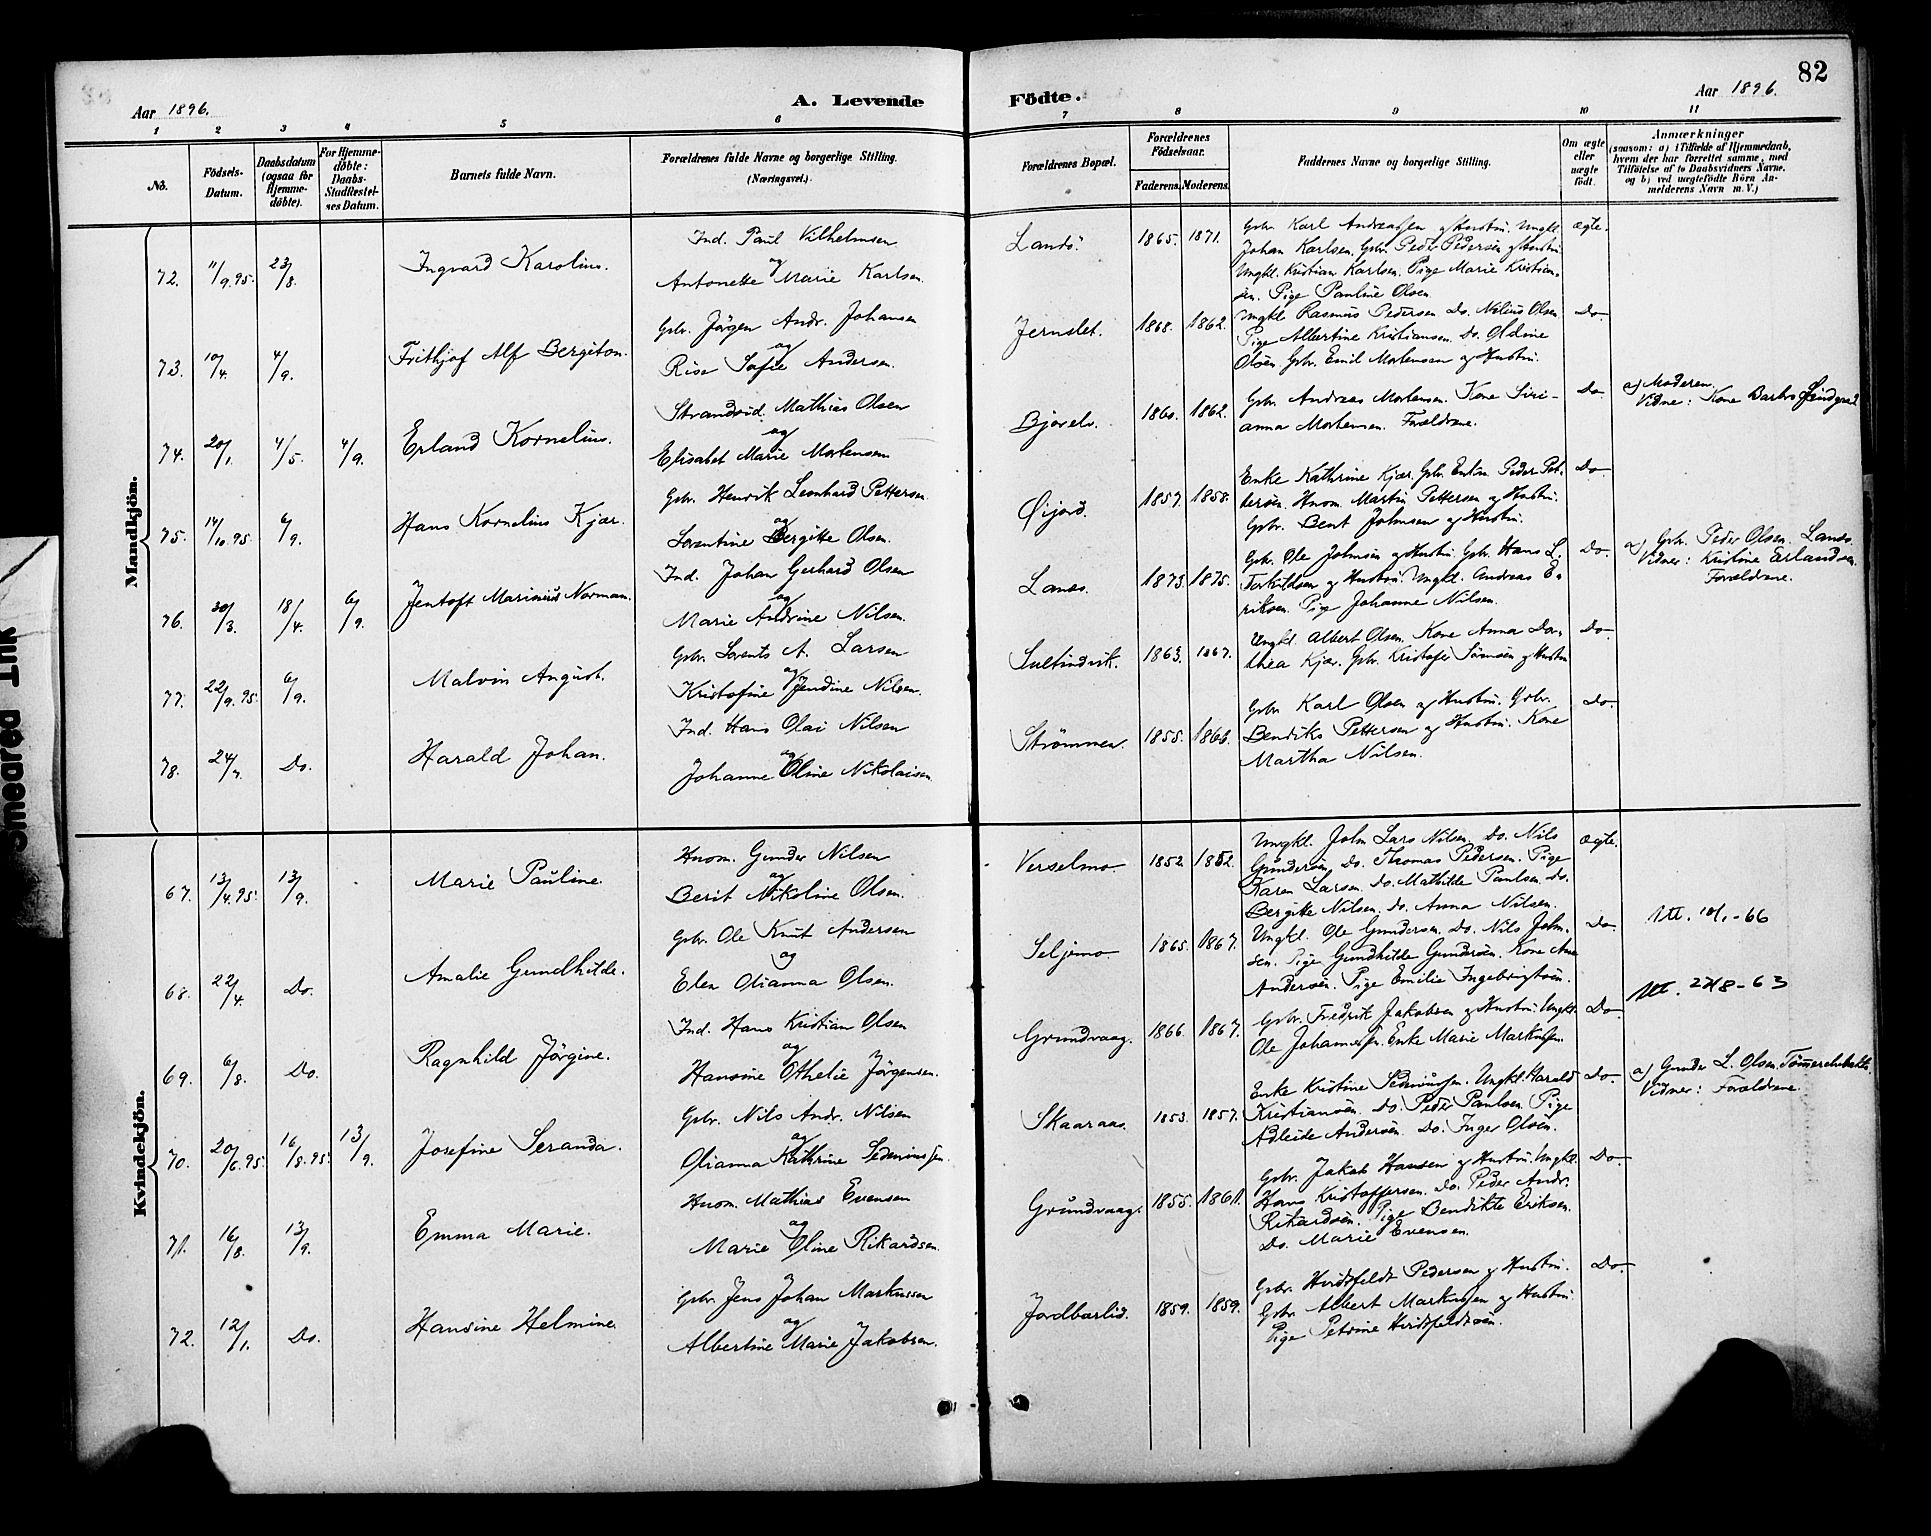 82
Aar 1896.
A. Levende Födte.
Aar 1896.
1 2 3 4 5 6 7 8 9 10 11
No.
Födsels-Datum.
Daabsdatum (ogsaa for Hjemme-döbte).
For Hjemme-döbte: Daabs-Stadfæstel-ses Datum.
Barnets fulde Navn.
Forældrenes fulde Navne og borgerlige Stilling. (Næringsvei.)
Forældrenes Bopæl.
Forældrenes Födselsaar.
Faderens. Moderens.
Faddernes Navne og borgerlige Stilling.
Om ægte eller uægte födt.
Anmærkninger
(saasom: a) i Tilfælde af Hjemmedaab,
hvem der har forrettet samme, med
Tilföielse af to Daabsvidners Navne,
og b) ved uægtefödte Börn An-
melderens Navn m. V.)
Mandkjön.
72. 11/9.95. 23/8. Ingvard Karolius.
Ind. Paul Vilhelmsen
og
Antonette Marie Karlsen.
Landö. 1865. 1871.
Gbr. Karl Andreassen og Hustru. Ungkl.
Johan Karlsen. Gbr. Peder Pedersen og Hustru.
Ungkl. Kristian Karlsen. Pige Marie Kristian-
sen. Pige Pauline Olsen.
ægte.
73. 10/4. 4/9. Frithjof Alf Bergiton.
Gbr. Jörgen Andr. Johansen
og
Rise Sofie Andersen.
Jernslet. 1868. 1862.
Ungkl. Rasmus Pedersen. Do. Nilius Olsen
Pige Albertine Kristiansen. Do. Oldine
Olsen. Gbr. Emil Mortensen og Hustru.
Do.
74. 20/1. 4/5. 4/9. Erland Kornelius.
Strandsid. Mathias Olsen
og
Elisabet Marie Mortensen
Bjorelv. 1860. 1862.
Gbr. Andreas Mortensen. Kone Siri-
anna Mortensen. Forældrene.
Do.
a) Moderen.
Vidne: Kone Barbro
75. 14/10.95. 6/9. Hans Kornelius Kjær.
Gbr. Henrik Leonhard Pettersen
og
Lorentine Bergitte Olsen.
Øijord. 1857. 1858.
Enke Kathrine Kjær. Gbr. Enkm. Peder Pet-
tersen. Husm. Martin Pettersen og Hustru.
Gbr. Bent Johnsen og Hustru.
Do.
76. 30/3. 18/4. 6/9. Jentoft Marinius Norman.
Ind. Johan Gerhard Olsen
og
Marie Andrine Nilsen.
Landö. 1873. 1875.
Gbr. Ole Johnsen og Hustru. Gbr. Hans L.
Torkildsen og Hustru. Ungkl. Andreas E-
riksen. Pige Johanne Nilsen.
Do.
a) Gbr. Peder Olsen. Landö.
Vidner: Kristine Erlandsen.
Forældrene.
77. 22/9.95. 6/9. Malvin August.
Gbr. Lorents A. Larsen
og
Kristofine Jendine Nilsen.
Sultindvik. 1863. 1867.
Ungkl. Albert Olsen. Kone Anna Do-
thea Kjær. Gbr. Kristofer Sörensen og Hustru
Do.
78. 24/7. Do. Harald Johan.
Ind. Hans Olai Nilsen
og
Johanne Oline Nikolaisen.
Strømmen. 1855. 1866.
Gbr. Karl Olsen og Hustru. Gbr.
Bendiks Pettersen og Hustru. Kone
Martha Nilsen.
Do.
Kvindekjön.
67. 13/4.95. 13/9. Marie Pauline.
Husm. Gunder Nilsen
og
Berit Nikoline Olsen.
Verselmo. 1852. 1852.
Ungkl. John Lars Nilsen. Do. Nils
Gundersen. Do. Thomas Pedersen. Pige
Karen Larsen. Do. Mathilde Paulsen. Do.
Bergitte Nilsen. Do. Anna Nilsen.
ægte.
68. 22/4. Do. Amalie Gundhilde.
Gbr. Ole Knut Andersen
og
Elen Olianna Olsen.
Seljemo. 1865. 1867.
Ungkl. Ole Gundersen. Do. Nils John-
sen. Pige Gundhilde Gundersen. Kone Ane
Andersen. Pige Emilie Ingebrigtsen.
Do.
Utt. 10/1-66
69. 6/8. Do. Ragnhild Jörgine.
Ind. Hans Kristian Olsen
og
Hansine Othelie Jörgensen.
Grundvaag. 1866. 1867.
Gbr. Fredrik Jakobsen og Hustru. Ungkl.
Ole Johannessen. Enke Marie Markussen.
Do.
Utt. 27/8-63
70. 20/6.95. 16/8.95. 13/9. Josefine Seranda.
Gbr. Nils Andr. Nilsen
og
Olianna Kathrine Sedeniussen.
Skaaraas. 1853. 1857.
Enke Kristine Sedeniussen. Ungkl. Harald
Kristiansen. Do. Peder Paulsen. Pige
Adleide Andersen. Do. Inger Olsen.
Do.
a) Gunder L. Olsen.
Vidner: Forældrene.
71. 16/8. 13/9. Emma Marie.
Husm. Mathias Evensen
og
Marie Oline Rikardsen.
Grundvaag. 1855. 1861.
Gbr. Jakob Hansen og Hustru. Ungkl.
Hans Kristoffersen. Do. Peder Andr.
Rikardsen. Pige Bendikte Eriksen.
Do. Marie Evensen.
Do.
72. 12/1. Do. Hansine Helmine.
Gbr. Jens Johan Markussen
og
Albertine Marie Jakobsen.
Jordbarlid. 1859. 1859.
Gbr. Hvidtfeldt Pedersen og Hustru.
Gbr. Albert Markussen og Hustru.
Pige Petrine Hvidtfeldtsen.
Do.
Smeared Ink